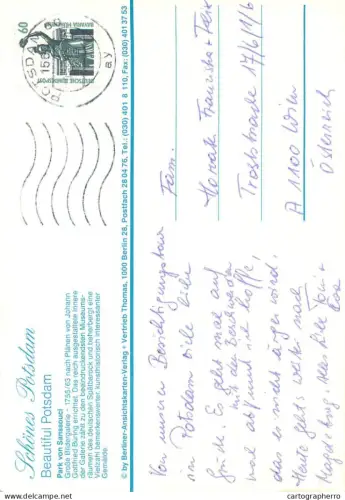 Schönes Potsdam
Beautiful Potsdam
Park von Sanssouci
Große Bildergalerie - 1755/63 nach Plänen von Johann
Gottfried Büring errichtet. Das reich ausgestaltete Innere
der Galerie zählt zu den beeindruckendsten Museums-
räumen des deutschen Spätbarock und beherbergt eine
Vielzahl bemerkenswerter, kunsthistorisch interessanter
Gemälde
© by Berliner-Ansichtskarten-Verlag • Vertrieb Thomas, 1000 Berlin 28, Postfach 28 04 76, Tel.: (030) 401 8 110, Fax: (030) 401 37 53
60
DEUTSCHE BUNDESPOST
BAVARIA MÜNCHEN
POTSDAM
156
ay
Von unserer Besichtigungstour
in Potsdam viele liebe
Grüße. Es geht mal auf
mal ab den Beschwerden
ich hoffe,
nicht ärger wird.
Heute geht's weiter nach
Magdeburg. Alles Liebe
Fam.
Horak Franziska +
Troststraße 17/6/1/6
A 1100 Wien
Österreich